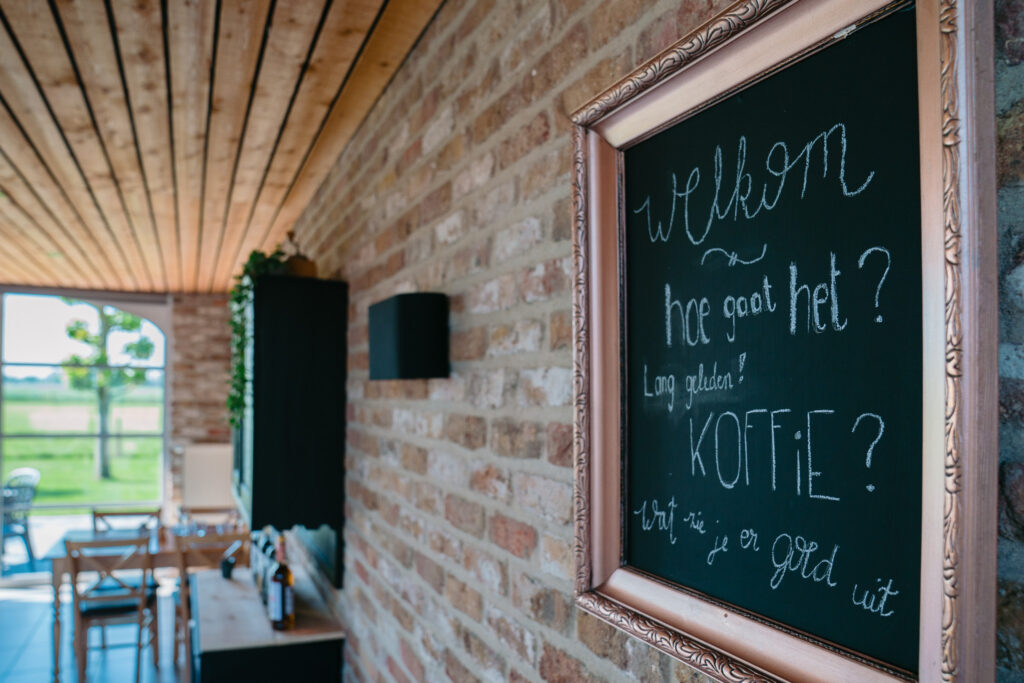 welkom
hoe gaat het?
Lang geleden!
KOFFIE?
wat zie je er gold uit